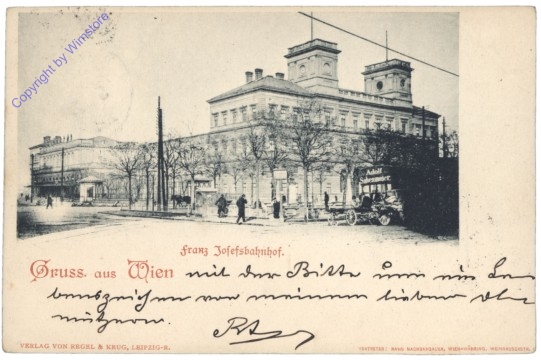 Copyright by Wimstore
Adolf
Franz Josefsbahnhof.
Gruss aus Wien mit der Bitte um ein Le-
benszeichen von meinem lieben
VERLAG VON REGEL & KRUG, LEIPZIG-R.